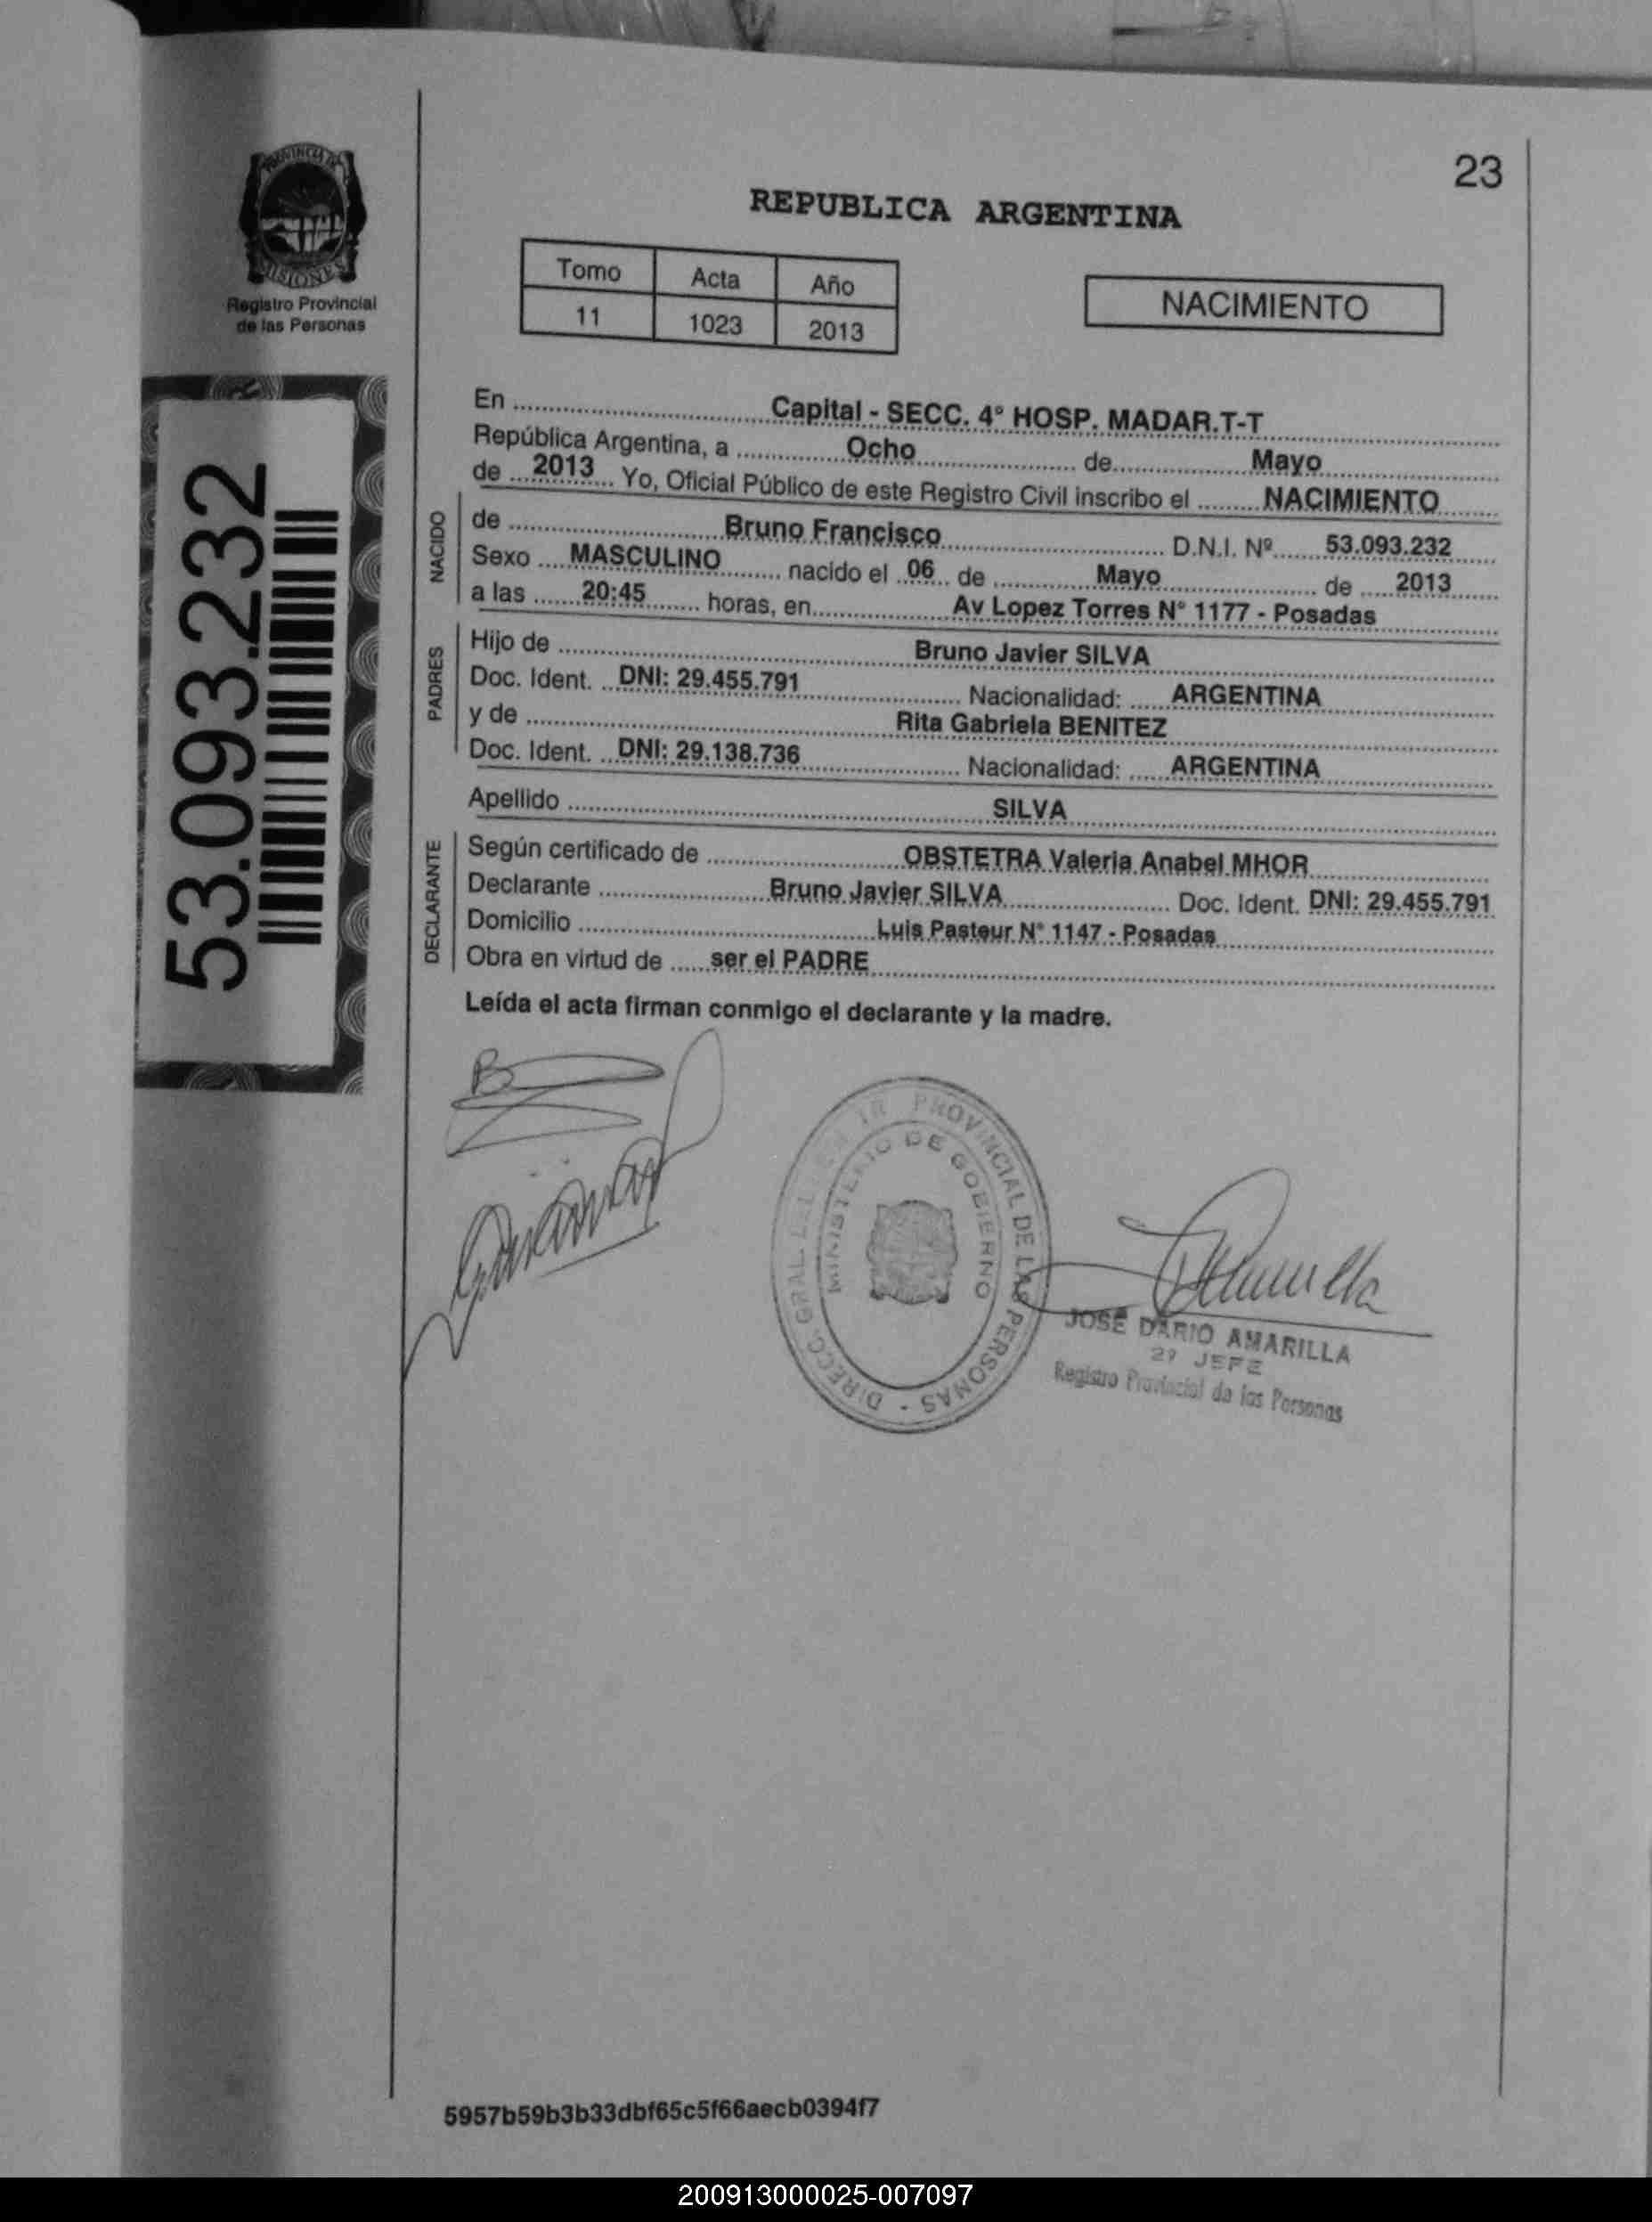 PROVINCIA DE
MISIONES
Registro Provincial
de las Personas
53.093.232
23
REPUBLICA ARGENTINA
Tomo Acta Año
11 1023 2013
NACIMIENTO
En Capital - SECC. 4° HOSP. MADAR.T-T
República Argentina, a Ocho de Mayo
de 2013 Yo, Oficial Público de este Registro Civil inscribo el NACIMIENTO
NACIDO
de Bruno Francisco D.N.I. Nº 53.093.232
Sexo MASCULINO nacido el 06 de Mayo de 2013
a las 20:45 horas, en Av Lopez Torres N° 1177 - Posadas
PADRES
Hijo de Bruno Javier SILVA
Doc. Ident. DNI: 29.455.791 Nacionalidad: ARGENTINA
y de Rita Gabriela BENITEZ
Doc. Ident. DNI: 29.138.736 Nacionalidad: ARGENTINA
Apellido SILVA
DECLARANTE
Según certificado de OBSTETRA Valeria Anabel MHOR
Declarante Bruno Javier SILVA Doc. Ident. DNI: 29.455.791
Domicilio Luis Pasteur N° 1147 - Posadas
Obra en virtud de ser el PADRE
Leída el acta firman conmigo el declarante y la madre.
DIRECC. GRAL. DEL PROVINCIAL DE LAS PERSONAS -
MINISTERIO DE GOBIERNO
JOSÉ DARIO AMARILLA
2º JEFE
Registro Provincial de las Personas
5957b59b3b33dbf65c5f66aecb0394f7
200913000025-007097